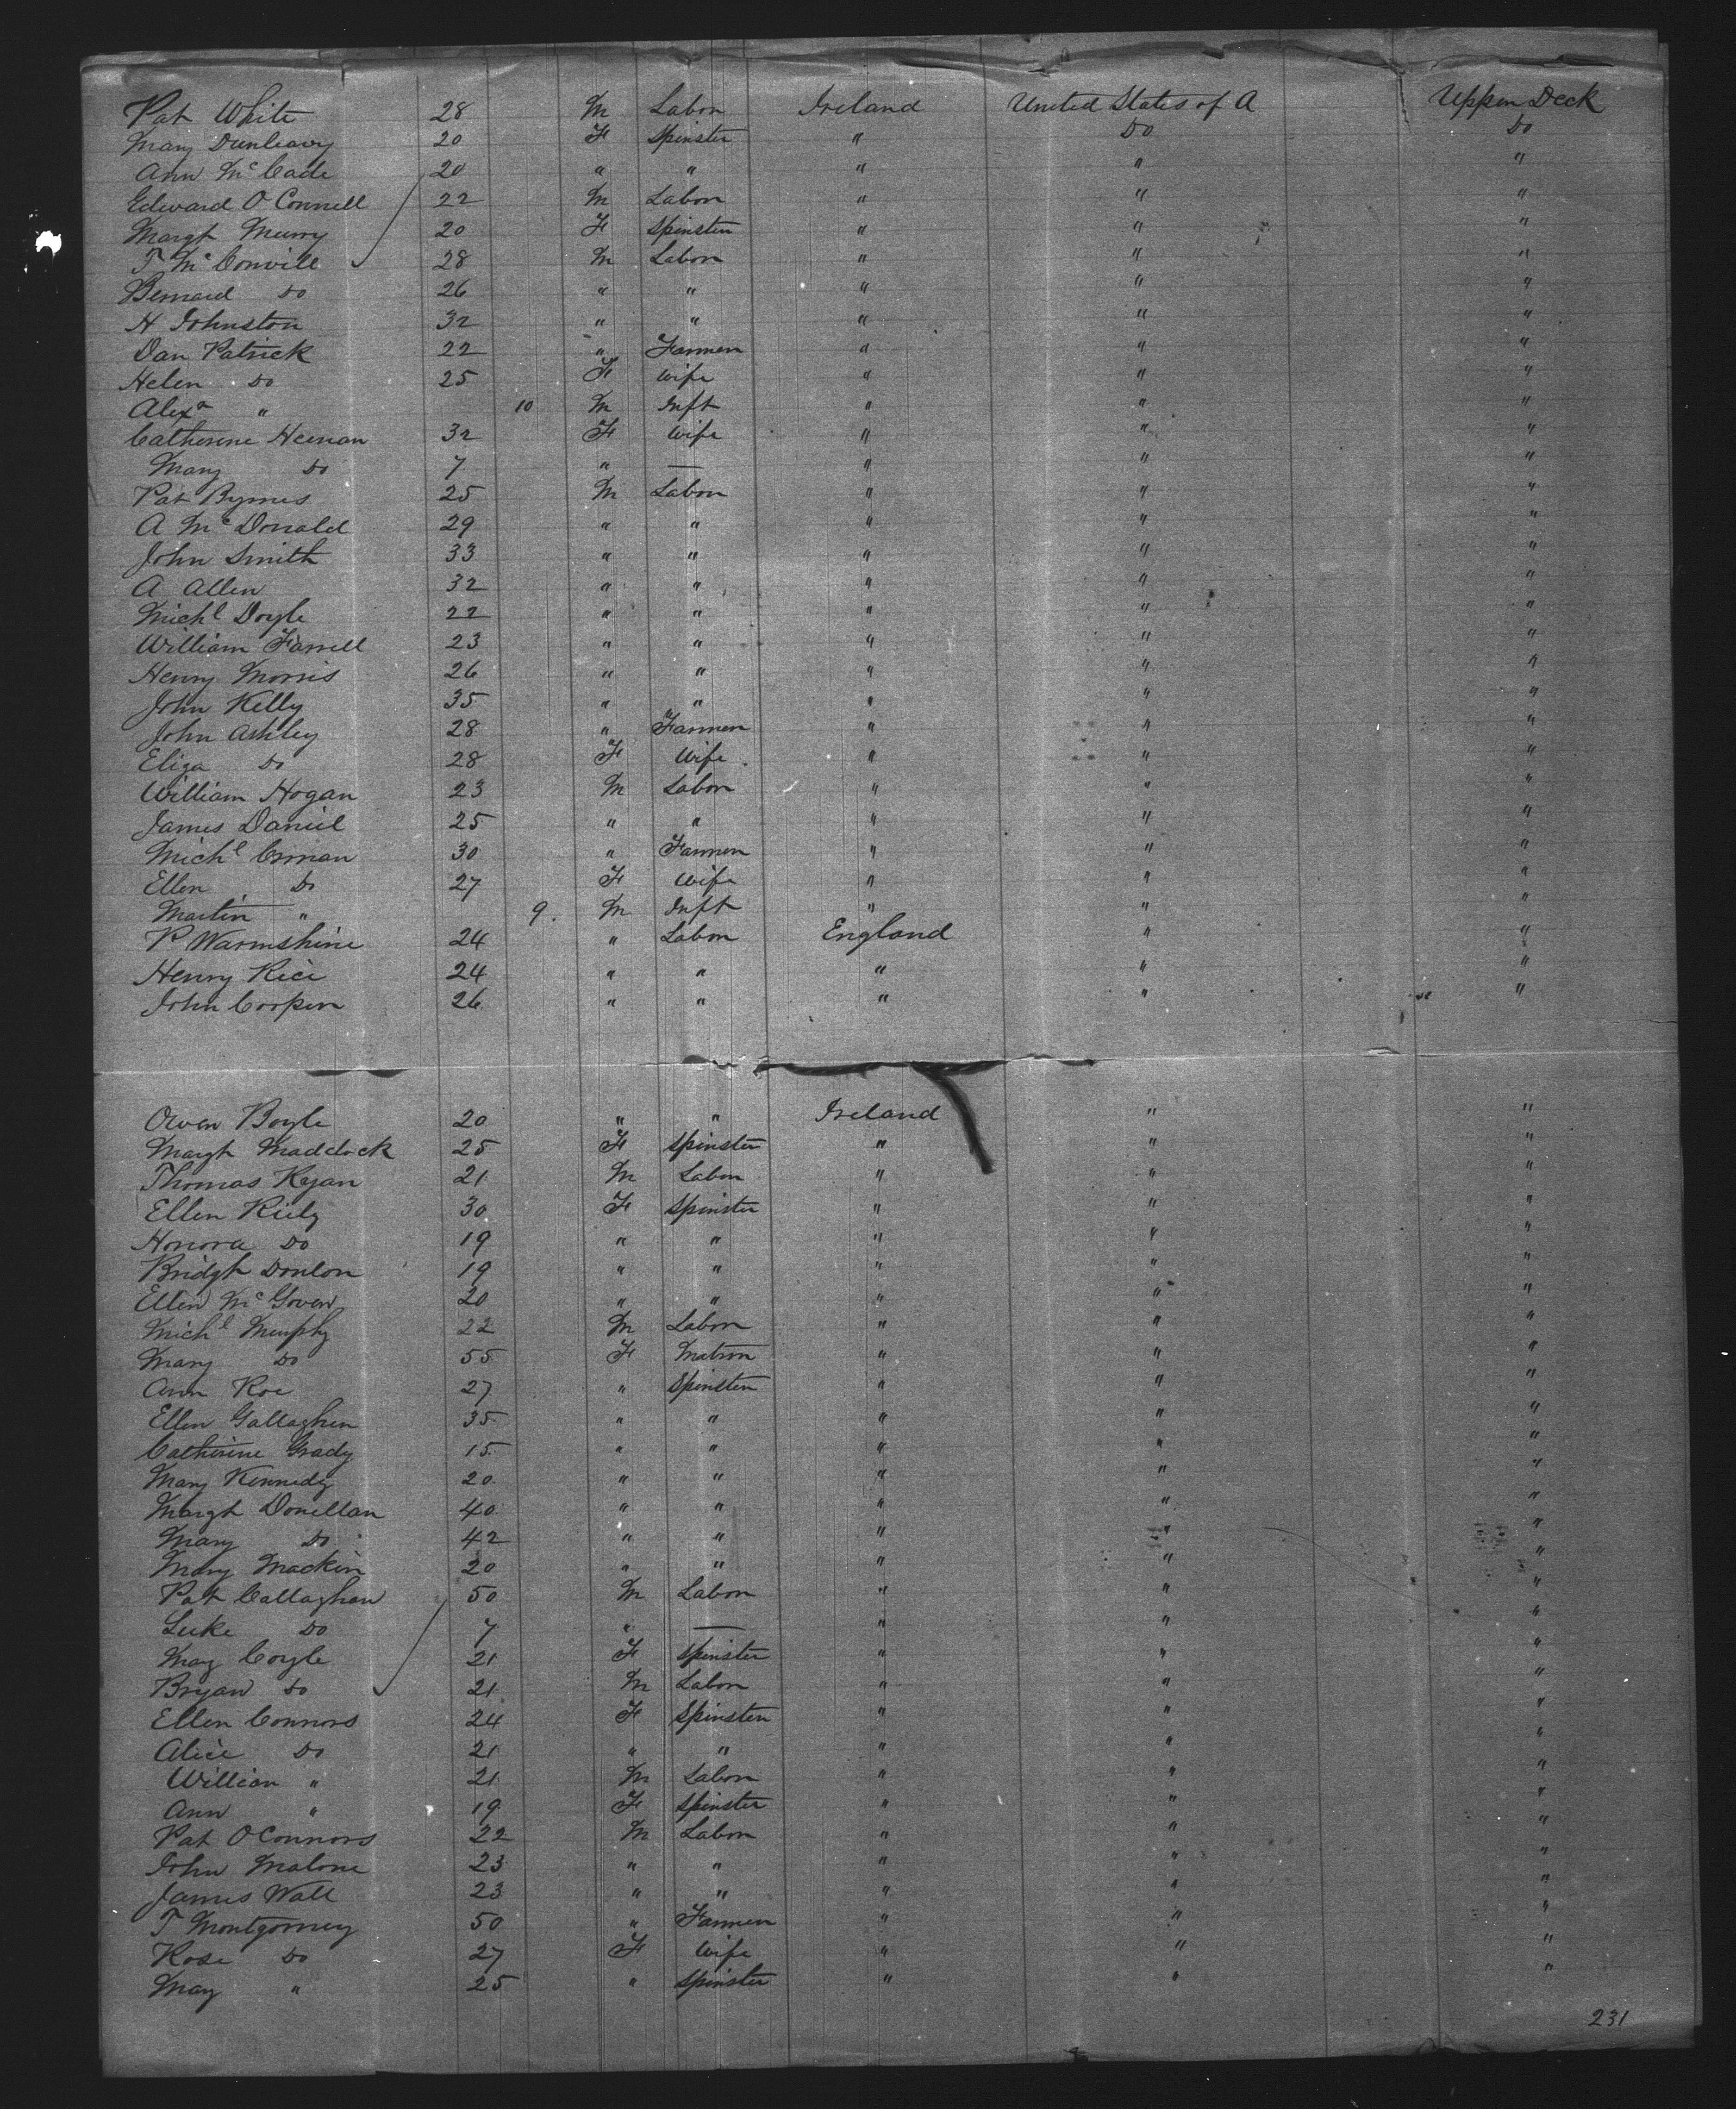 Pat White 28 M Labor Ireland United States of A Upper Deck
Mary Dunleavy 20 F Spinster " Do Do
Ann McCade 20 " " " " "
Edward O'Connell 22 M Labor " " "
Margt Murry 20 F Spinster " " "
T McConvill 28 M Labor " " "
Bernard Do 26 " " " " "
H Johnston 32 " " " " "
Dan Patrick 22 " Farmer " " "
Helen Do 25 F Wife " " "
Alexr " 10 M Inft " " "
Catherine Heenan 32 F Wife " " "
Mary Do 7 " — " " "
Pat Byrnes 25 M Labor " " "
A McDonald 29 " " " " "
John Smith 33 " " " " "
A Allen 32 " " " " "
Michl Doyle 22 " " " " "
William Farrell 23 " " " " "
Henry Morris 26 " " " " "
John Kelly 35 " " " " "
John Ashley 28 " Farmer " " "
Eliza Do 28 F Wife " " "
William Hogan 23 M Labor " " "
James Daniel 25 " " " " "
Michl 30 " Farmer " " "
Ellen Do 27 F Wife " " "
Martin " 9. M Inft " " "
P Warmshine 24 " Labor England " "
Henry Rice 24 " " " " "
John Cooper 26 " " " " "
Owen Boyle 20 " " Ireland " "
Margt Maddock 25 F Spinster " " "
Thomas Ryan 21 M Labor " " "
Ellen Riely 30 F Spinster " " "
Honora Do 19 " " " " "
Bridgt Donlon 19 " " " " "
Ellen McGoven 20 " " " " "
Michl Murphy 22 M Labor " " "
Mary Do 55 F Matron " " "
Ann Roe 27 " Spinster " " "
Ellen Gallagher 35 " " " " "
Catherine Grady 15 " " " " "
Mary Kennedy 20 " " " " "
Margt Donellan 40 " " " " "
Mary Do 42 " " " " "
Mary Mackin 20 " " " " "
Pat Callaghan 50 M Labor " " "
Luke Do 7 " — " " "
May Coyle 21 F Spinster " " "
Bryan Do 21 M Labor " " "
Ellen Connors 24 F Spinster " " "
Alice Do 21 " " " " "
William " 21 M Labor " " "
Ann " 19 F Spinster " " "
Pat O'Connors 22 M Labor " " "
John Malone 23 " " " " "
James Wall 23 " " " " "
T Montgomey 50 " Farmer " " "
Rose Do 27 F Wife " " "
May " 25 " Spinster " " "
231